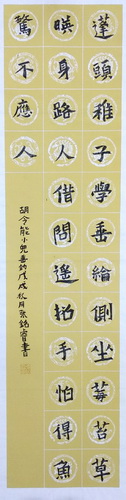 蓬頭稚子學垂綸側坐莓苔草
暎身路人借問遙招手怕得魚
驚不應人
胡令能小兒垂釣戊戌秋月